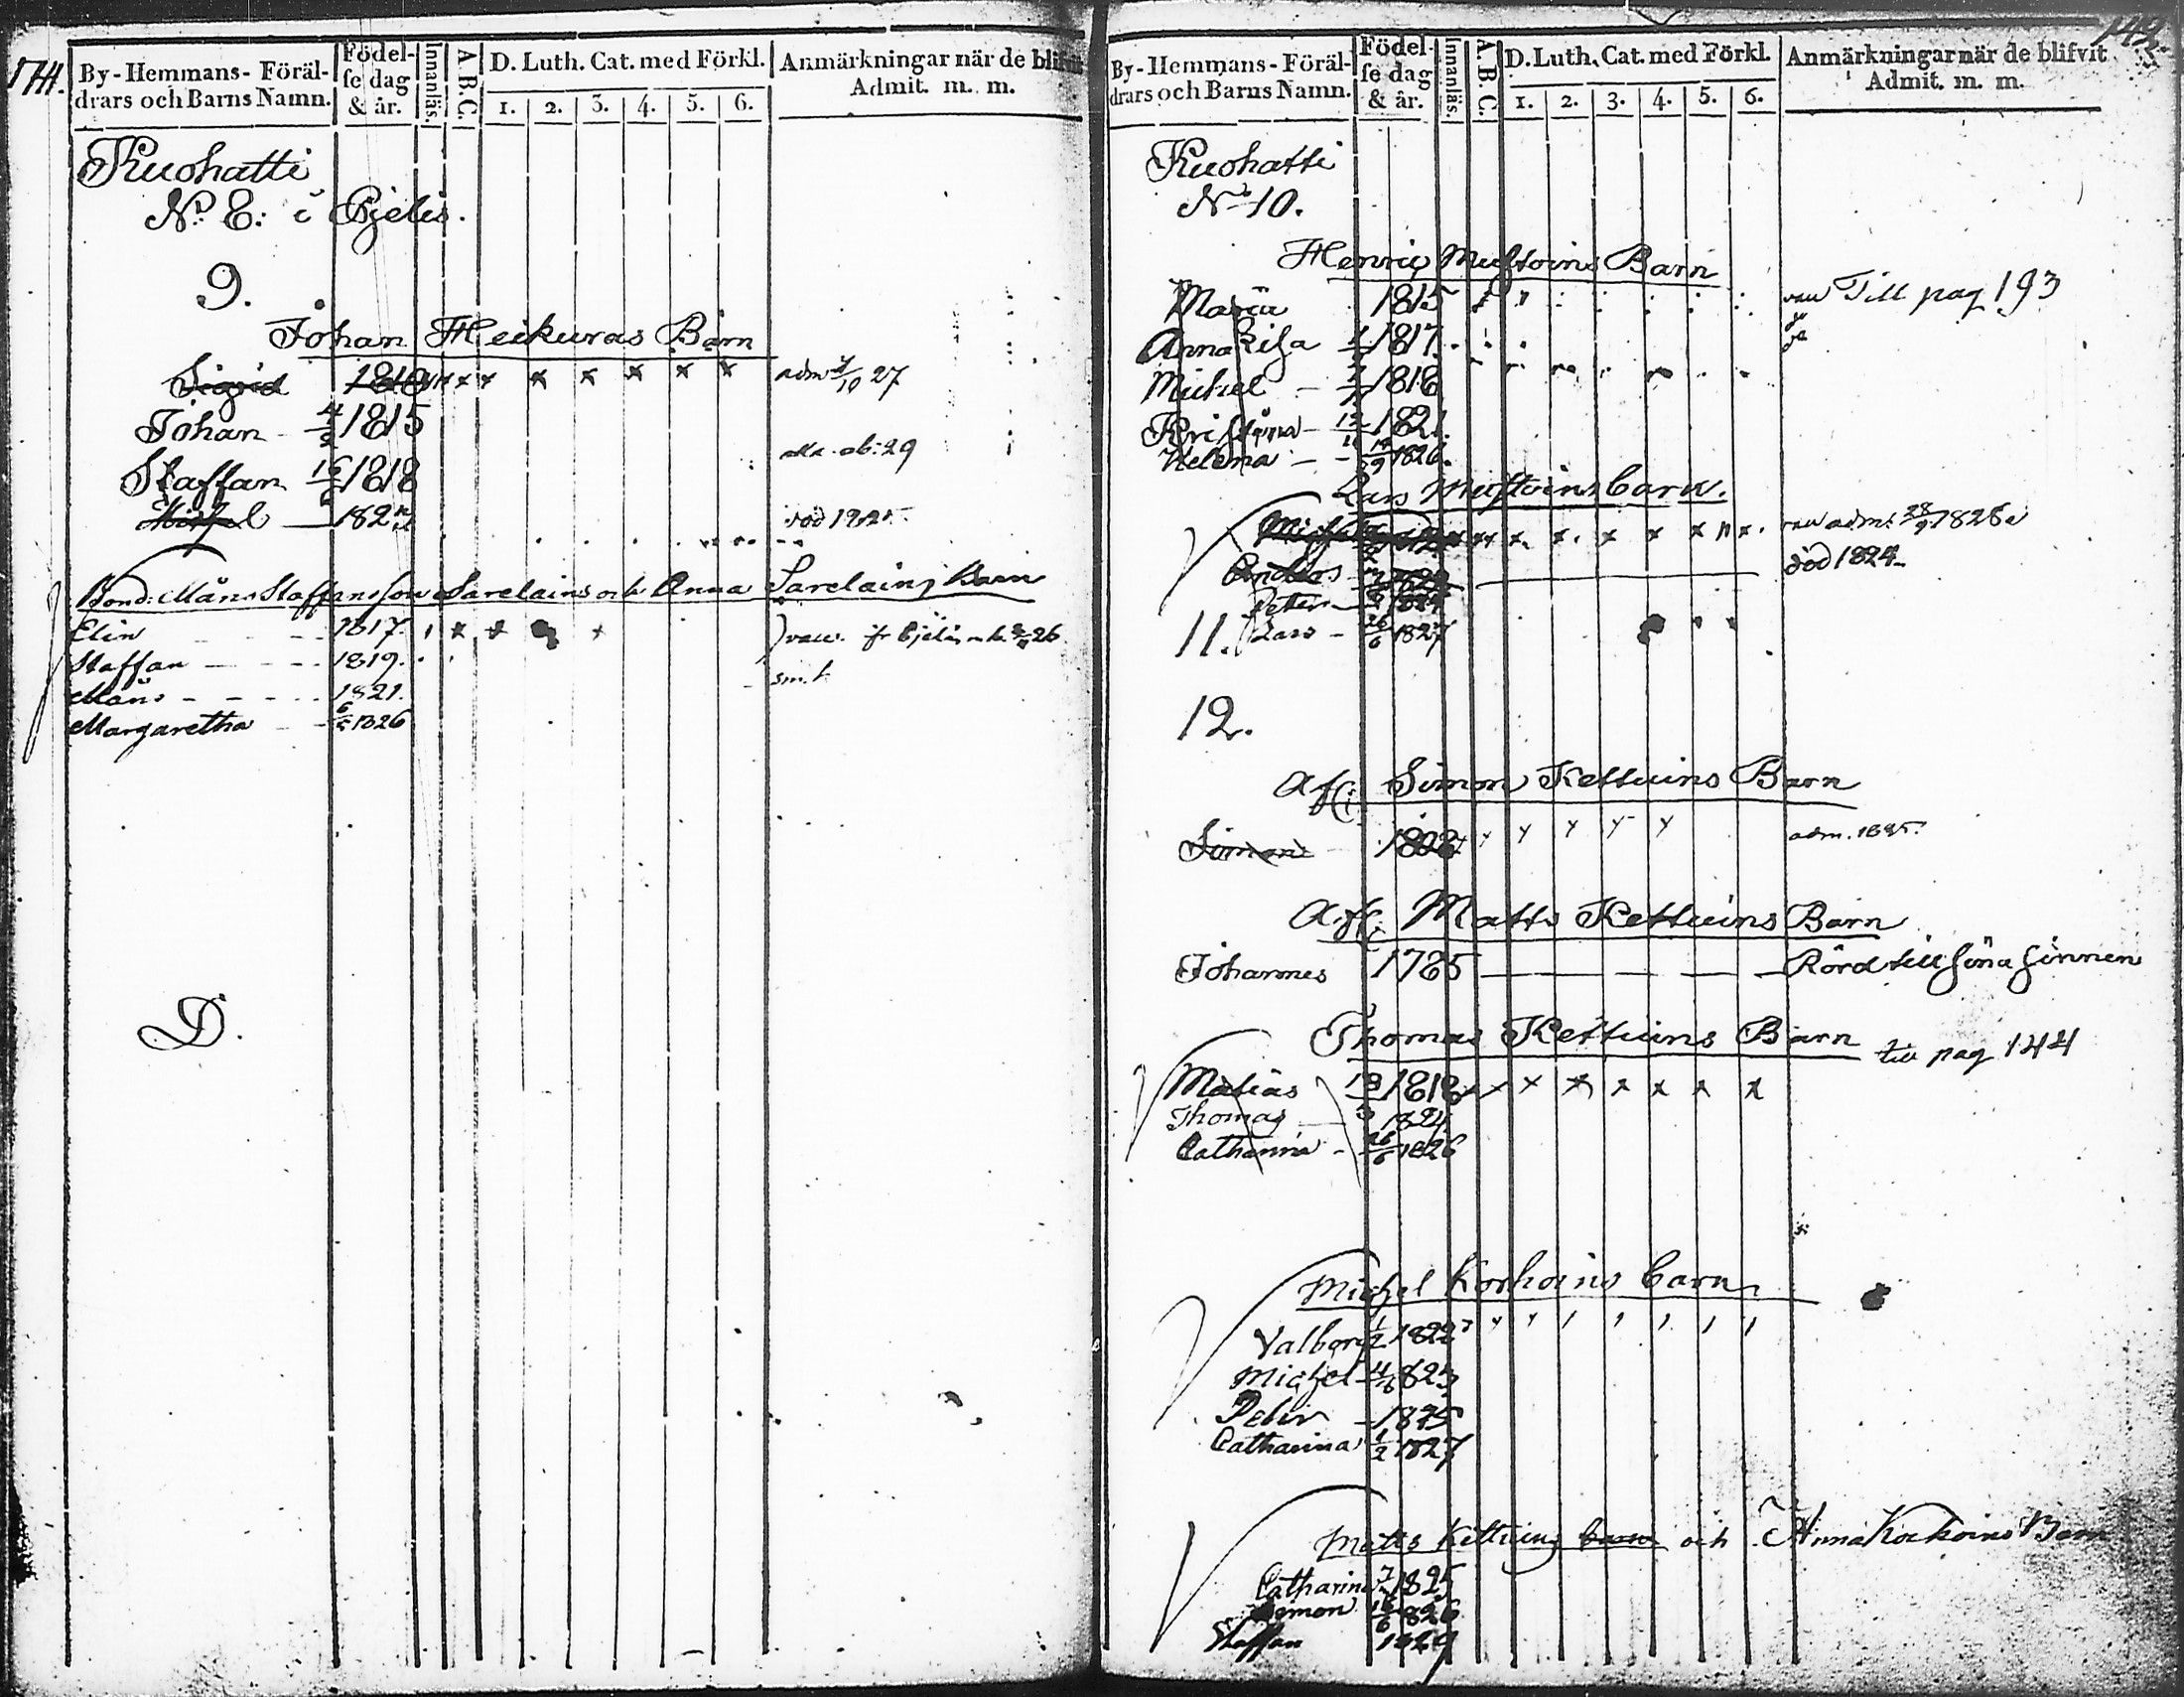 By-Hemmans-Föräl-
drars och Barns Namn.
Födel-
se dag
& år.
Innanläs.
A.B.C.
D. Luth. Cat. med Förkl.
1. 2. 3. 4. 5. 6.
Anmärkningar när de blifvit
Admit. m. m.
Kuohatti
N:o E: i Pjelis.
9.
Johan Heikuras Barn
Sigrid 1810 x x x x x x x adm 27
Johan 1815
Staffan 1818
182
död 1825
Bond: Måns Staffansson Sarelains och Anna Sarelains Barn
Elin 1817.
Staffan 1819.
Måns 1821.
Margaretha 1826
D.
142
By-Hemmans-Föräl-
drars och Barns Namn.
Födel-
se dag
& år.
Innanläs.
A.B.C.
D. Luth. Cat. med Förkl.
1. 2. 3. 4. 5. 6.
Anmärkningar när de blifvit
Admit. m. m.
Kuohatti
N:o 10.
Henric Mustoins Barn
Maria 1815 Till pag 193
Anna Lisa 1817.
Michel 1818
Kristina 1821.
Helena 1826.
Lars Mustoins barn.
adm: 28/9 1828
Anders död 1824
Peter
11. Lars 26/6 1827
12.
Afl: Simon Kettuins Barn
Simon 1808 adm. 1825.
Afl: Matts Kettuins Barn
Johannes 1785 Rörd till sina sinnen
Thomas Kettuins Barn till pag 144
Matias 1818 x x x x x x x x
Thomas 1824
Catharina 26/6 1826
Michel Korhoins barn
Valborg 1/2 1822
Michel 1823
Peter 1825
Catharina 1/2 1827
Matts Kettuins barn och Anna Korhoins Barn
Catharina 1825
Simon 16/6 1826
Staffan 1829